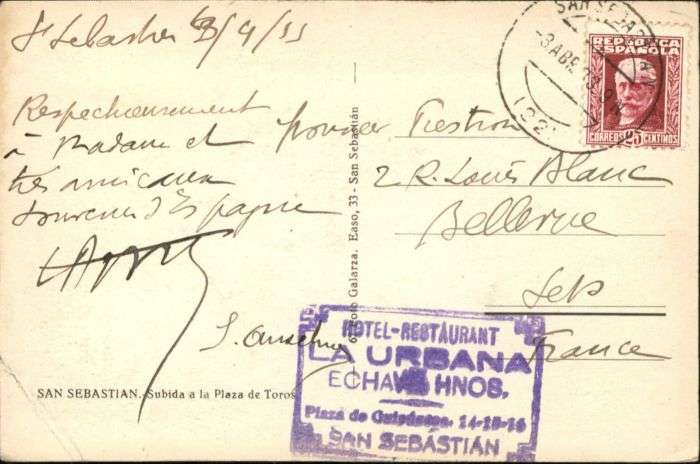 St Sebastien 3/4/33
Respectueusement
à Madame et
très amicaux
souvenirs d'Espagne
SAN SEBASTIAN.-Subida a la Plaza de Toros
Foto Galarza. Easo, 33 - San Sebastián
SAN SEBASTIAN
-3 ABR 33
REPUBLICA
ESPAÑOLA
CORREOS 25 CENTIMOS
2 R. Louis Blanc
Bellerive
France
HOTEL-RESTAURANT
LA URBANA
ECHAVE HNOS.
Plaza de Guipúzcoa. 14-15-16
SAN SEBASTIÁN